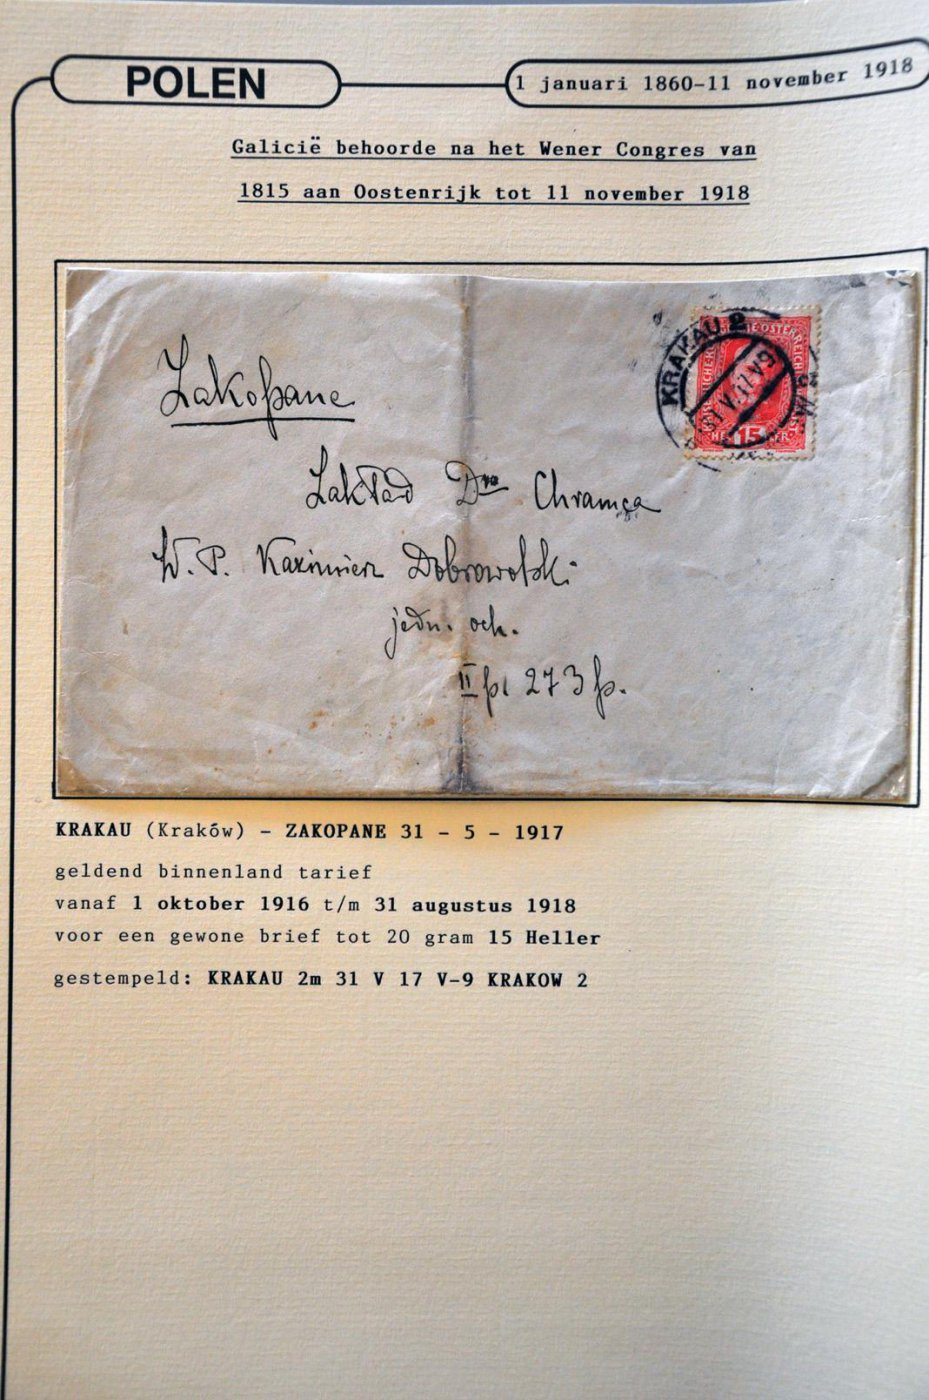 POLEN
1 januari 1860-11 november 1918
Galicië behoorde na het Wener Congres van
1815 aan Oostenrijk tot 11 november 1918
KRAKAU 2
31 V 17 V9
15
Zakopane
Zakład Dra Chramca
W. P. Kazimierz Dobrowolski
jedn. och.
II p. 273 p.
KRAKAU (Kraków) - ZAKOPANE 31 - 5 - 1917
geldend binnenland tarief
vanaf 1 oktober 1916 t/m 31 augustus 1918
voor een gewone brief tot 20 gram 15 Heller
gestempeld: KRAKAU 2m 31 V 17 V-9 KRAKOW 2